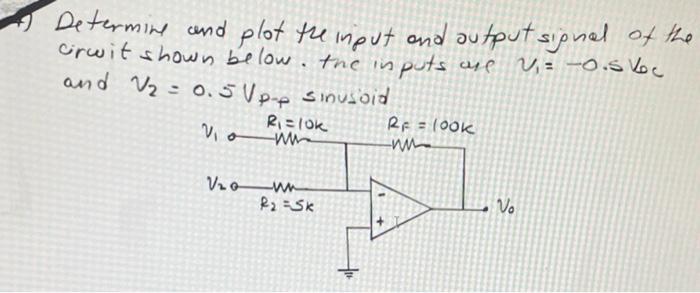 4) Determine and plot the input and output signal of the
circuit shown below. the inputs are V₁ = -0.5 VDC
and V₂ = 0.5 Vp-p sinusoid
R₁ = 10K RF = 100K
V₁
V₂
R₂ = 5K
-
+
V₀